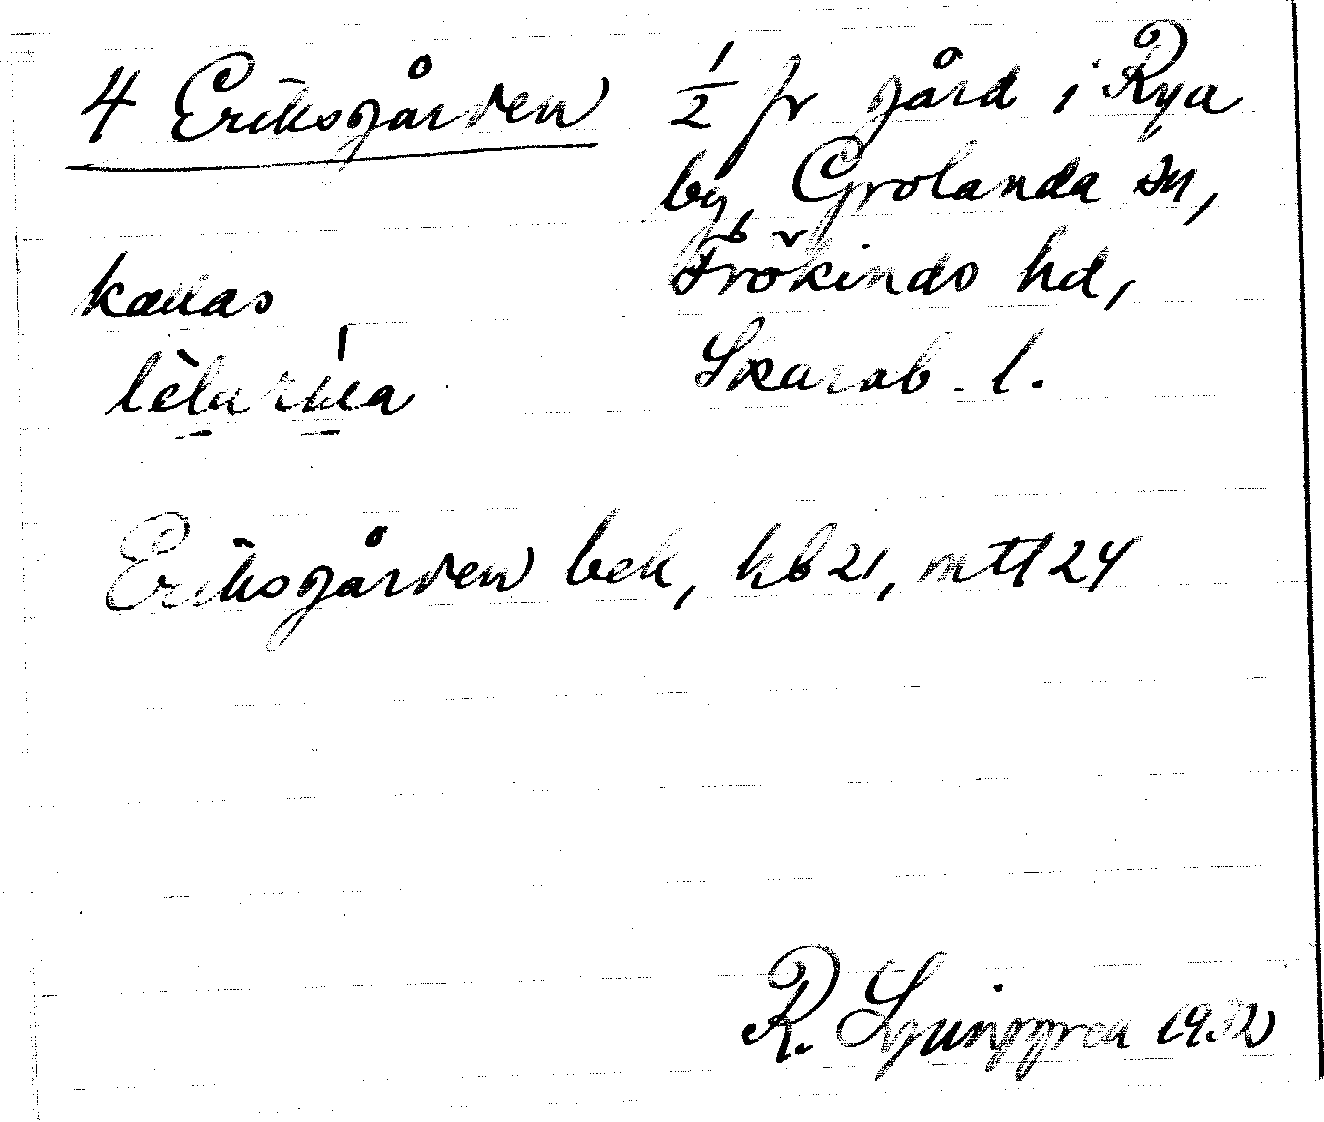 4 Eriksgården
1/2 fr gård i Rya
by, Grolanda sn,
Frökinds hd,
Skarab. l.
kallas
Eriksgården bek, hb 21, mtl 24
R. Ljunggren 1932